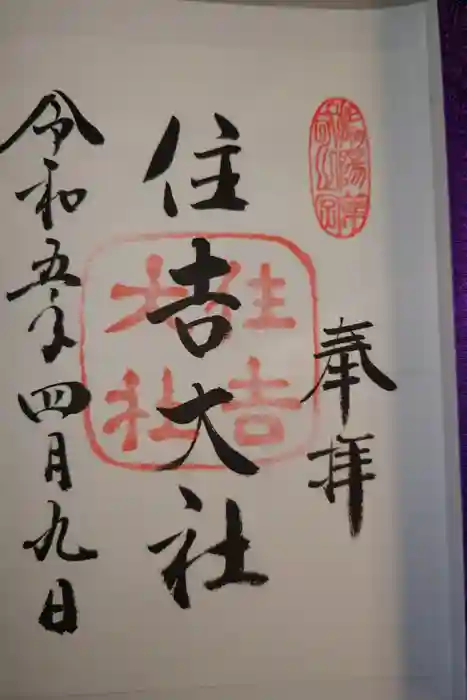 奉拝
住吉大社
住吉大社
令和五年四月九日